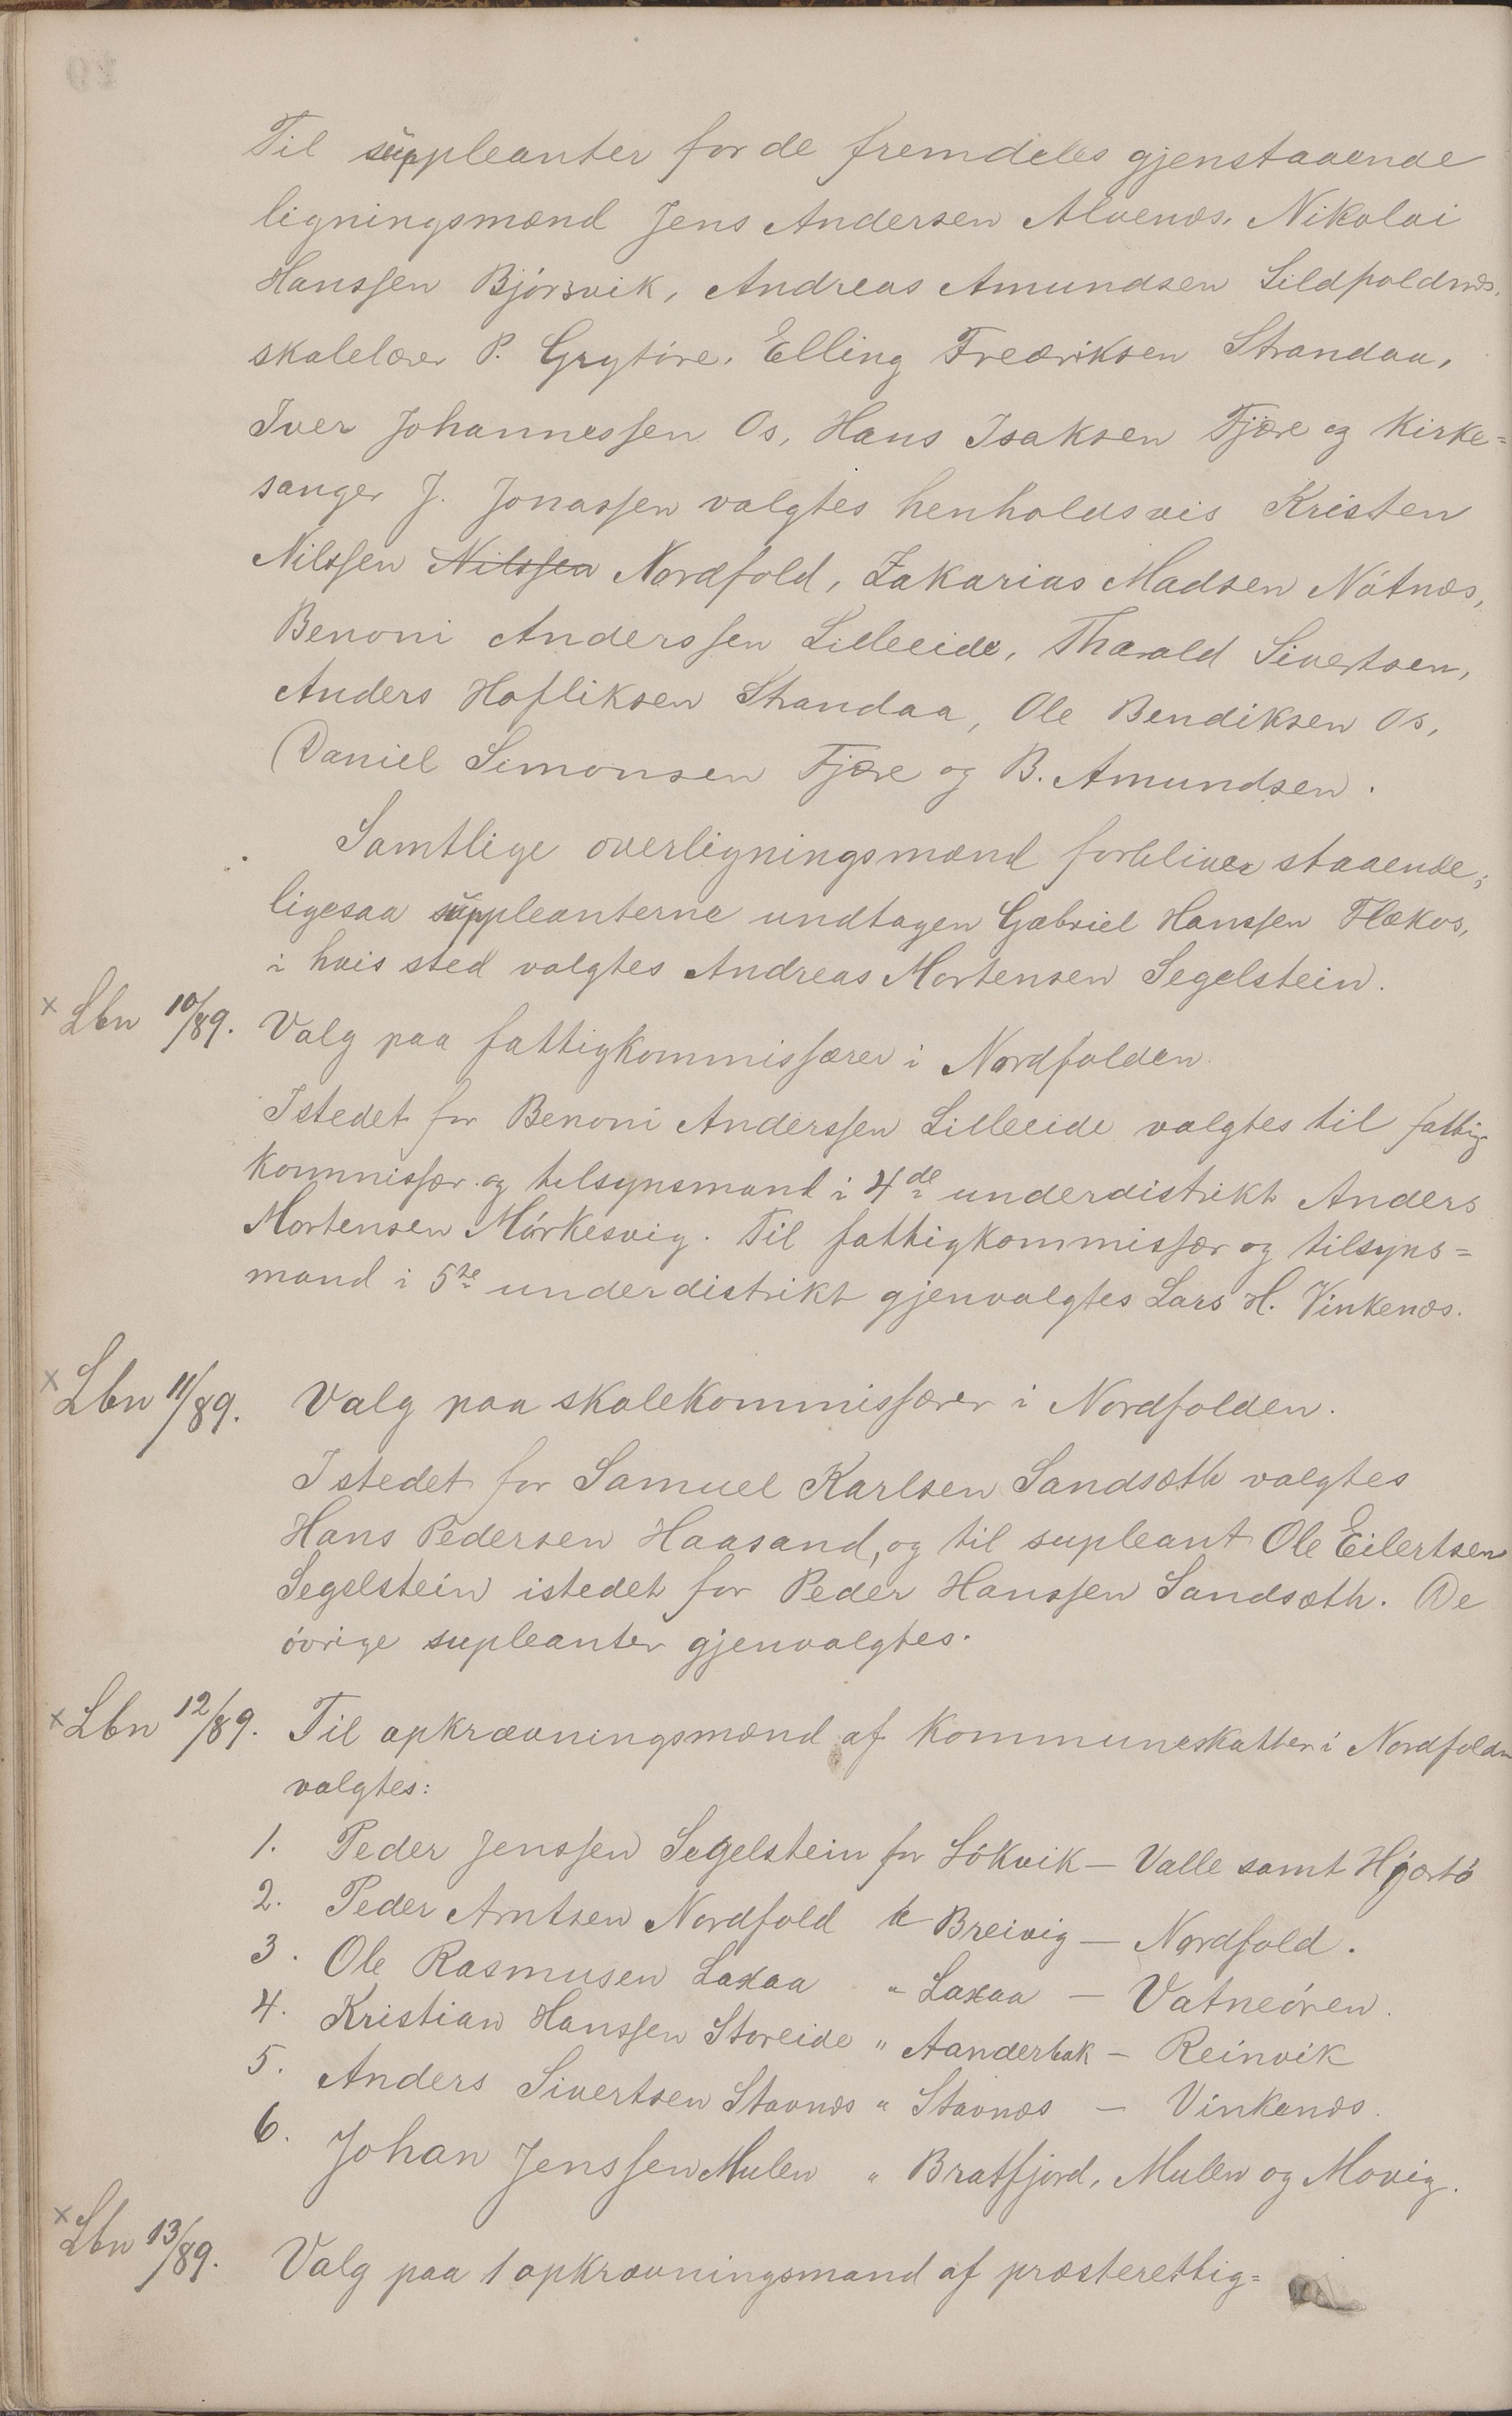 Til suppleanter for de fremdeles gjenstaaende
ligningsmænd Jens Andersen Alvenæs, Nikolai
Hanssen Bjórsvik, Andreas Amundsen Sildpoldnæs,
skolelærer P. Grytóre, Elling Fredriksen Strandaa,
Iver Johannessen Os, Hans Isaksen Fjære og Kirke=
sanger J. Jonassen valgtes henholdsvis Kristen
Nilssen Nilssen Nordfold, Zakarias Madsen Nótnæs,
Benoni Anderssen Lilleeide, Tharald Sivertsen,
Anders Hofliksen Strandaa, Ole Bendiksen Os,
Daniel Simonsen Fjære og B. Amundsen.
Samtlige overligningsmænd forbliver staaende;
ligesaa suppleanterne undtagen Gabriel Hanssen Flækos,
i hvis sted valgtes Andreas Mortensen Segelstein.
x Lbn 10/89. Valg paa fattigkommissærer i Nordfolden.
Istedet for Benoni Anderssen Lilleeide valgtes til fattig
kommissær og tilsynsmand i 4de underdistrikt Anders
Mortensen Mórkesvig. Til fattigkommissær og tilsyns=
mand i 5te underdistrikt gjenvalgtes Lars H. Vinkenæs.
x Lbn 11/89. Valg paa skolekommissærer i Nordfolden.
Istedet for Samuel Karlsen Sandsæth valgtes
Hans Pedersen Haasand, og til supleant Ole Eilertsen
Segelstein istedet for Peder Hanssen Sandsæth. De
óvrige supleanter gjenvalgtes.
x Lbn 12/89. Til opkrævningsmænd af Kommuneskatter i Nordfolden
valgtes:
1. Peder Jenssen Segelstein for Sókvik – Valle samt Hjærtó
2. Peder Arntsen Nordfold " Breivig – Nordfold.
3. Ole Rasmusen Laxaa " Laxaa – Vatneóren.
4. Kristian Hanssen Storeide " Aanderbak – Reinvik
5. Anders Sivertsen Stavnæs " Stavnæs – Vinkenæs.
6. Johan Jenssen Mulen " Bratfjord, Mulen og Movig.
x Lbn 13/89. Valg paa 1 opkrævningsmand af præsterettig=